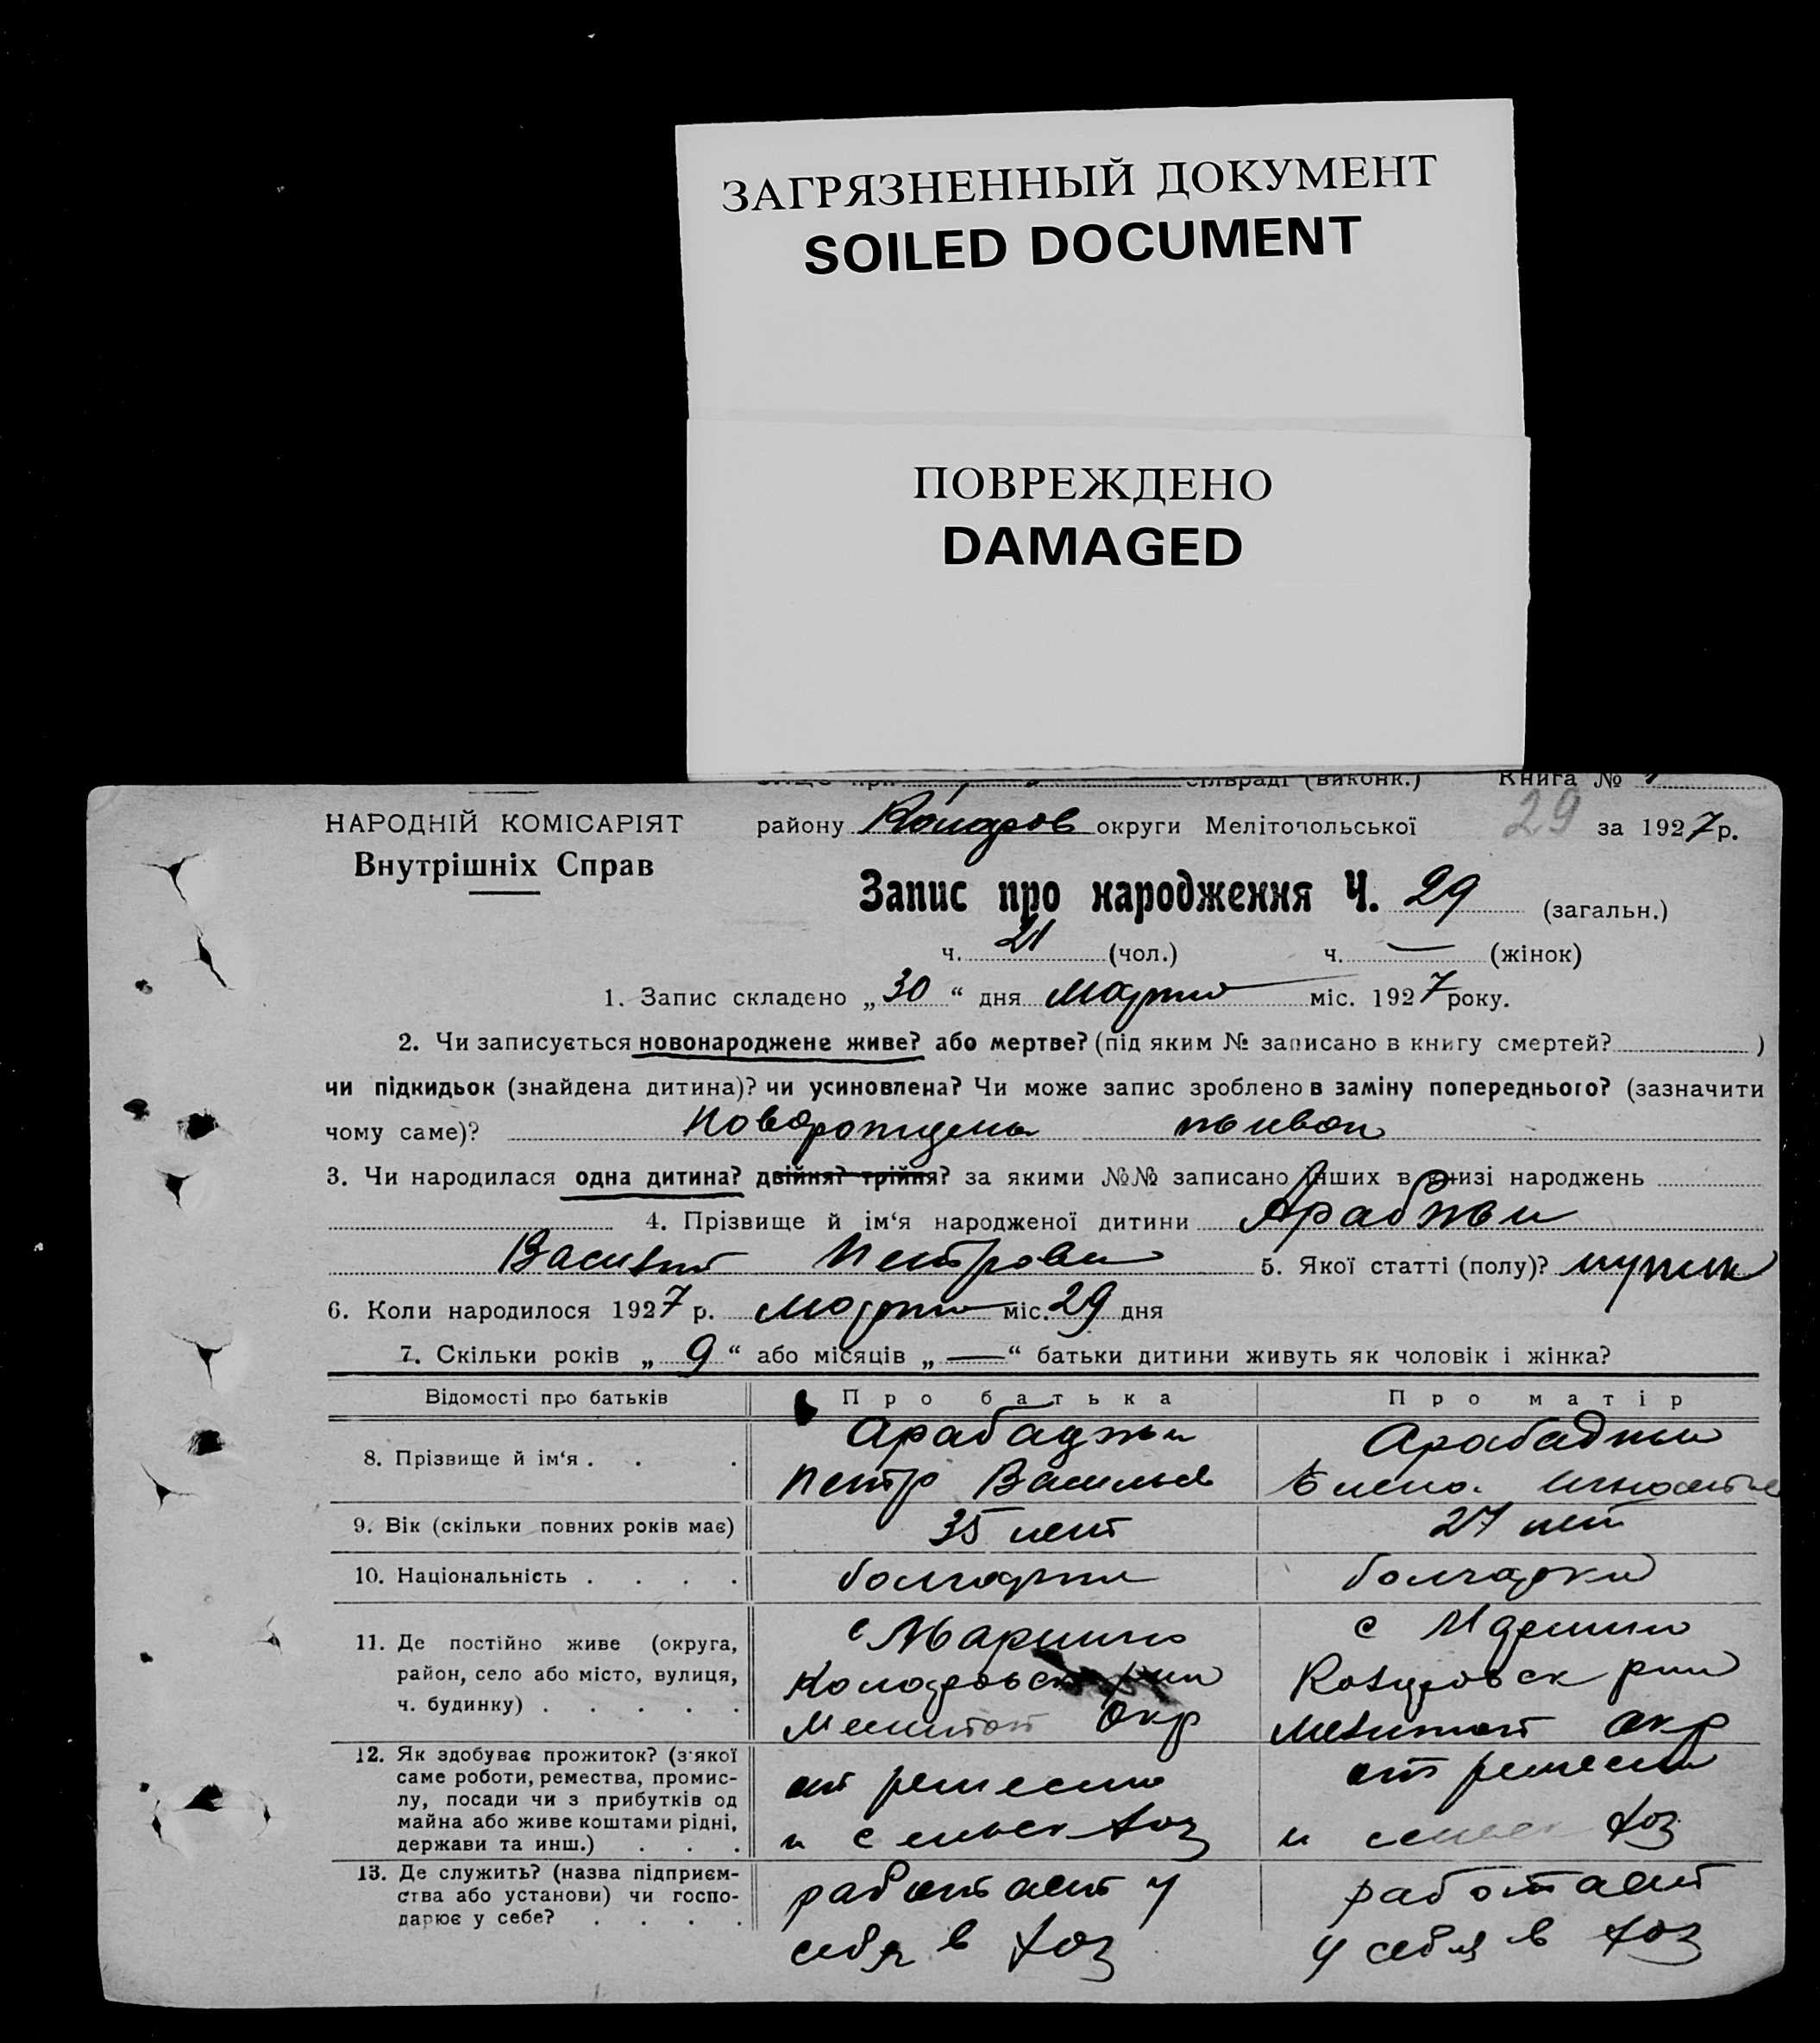 ЗАГРЯЗНЕННЫЙ ДОКУМЕНТ
SOILED DOCUMENT
ПОВРЕЖДЕНО
DAMAGED
сільраді (виконк.) Книга №
НАРОДНІЙ КОМІСАРІЯТ
Внутрішніх Справ
району округи Мелітопольської 29 за 1927 р.
Запис про народження Ч. 29 (загальн.)
ч. 21 (чол.) ч. — (жінок)
1. Запис складено „30“ дня Марта міс. 1927 року.
2. Чи записується новонароджене живе? або мертве? (під яким № записано в книгу смертей? )
чи підкидьок (знайдена дитина)? чи усиновлена? Чи може запис зроблено в заміну попереднього? (зазначити
чому саме)?
3. Чи народилася одна дитина? двійня? трійня? за якими №№ записано інших в книзі народжень
4. Прізвище й ім‘я народженої дитини Арабжы
Василий Петрови 5. Якої статті (полу)? мужск
6. Коли народилося 1927 р. Марта міс. 29 дня
7. Скільки років „9“ або місяців „—“ батьки дитини живуть як чоловік і жінка?
Відомості про батьків Про батька Про матір
8. Прізвище й ім‘я . . . Арабаджы Петр Васильев Арабаджы Елена Игнатье
9. Вік (скільки повних років має) 35 лет 27 лет
10. Національність . . . . болгарин болгарки
11. Де постійно живе (округа,
район, село або місто, вулиця,
ч. будинку) . . . . .
с Марино
Коларовск рин
Мелитоп Окр
с Марино
Коларовск рин
Мелитоп Окр
12. Як здобуває прожиток? (з якої
саме роботи, ремества, промис-
лу, посади чи з прибутків од
майна або живе коштами рідні,
держави та инш.) . . .
от ремесла
и сельск хоз
от ремесла
и сельск хоз
13. Де служить? (назва підприєм-
ства або установи) чи госпо-
дарює у себе? . . . .
работает у
себя в хоз
работает
у себя в хоз